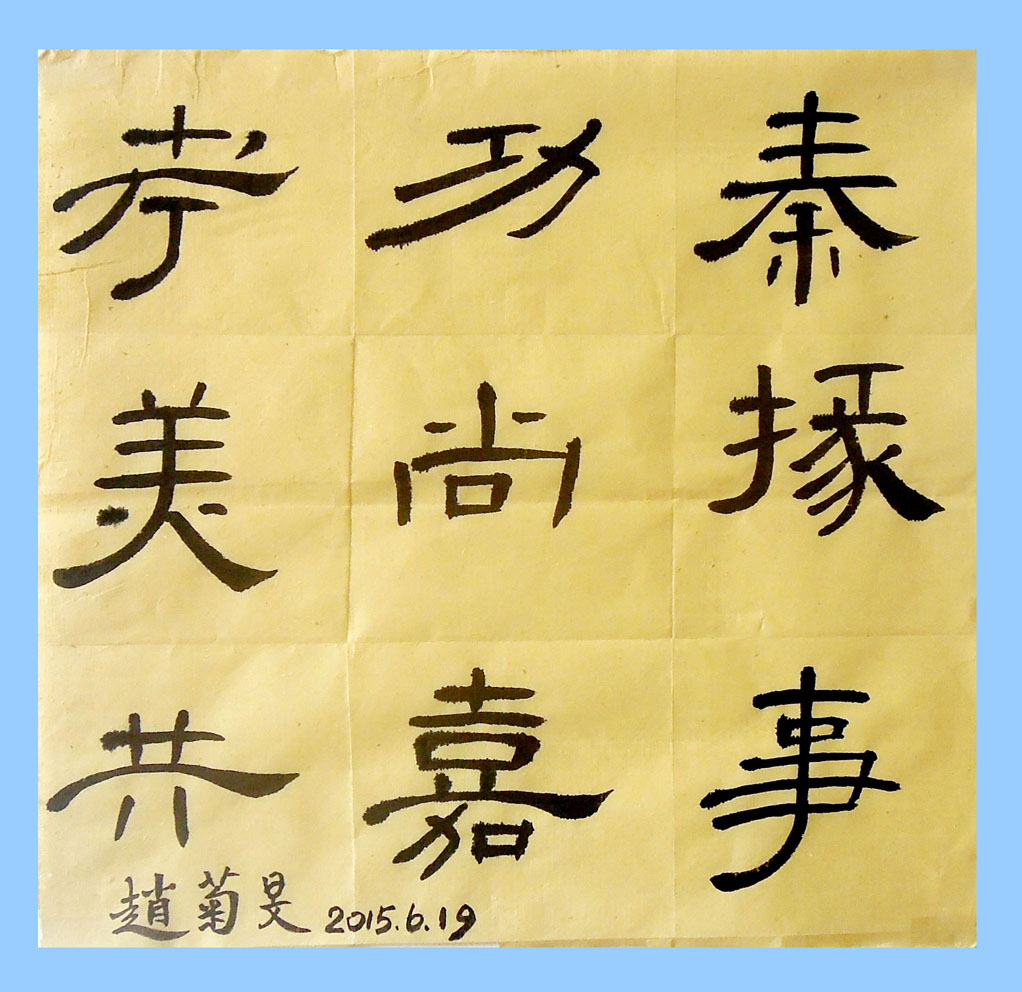 秦掾事
功尚嘉
考美共
趙菊旻 2015.6.19